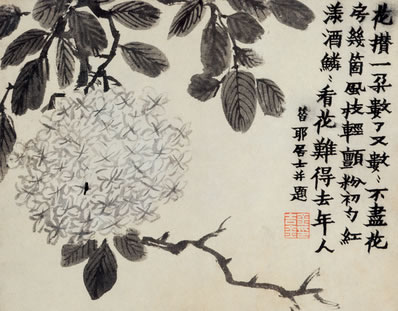 花攢一朶數了又數〻不盡花
房幾箇風枝輕顫粉初勻紅
漾酒鱗〻看花難得去年人
昔耶居士并題